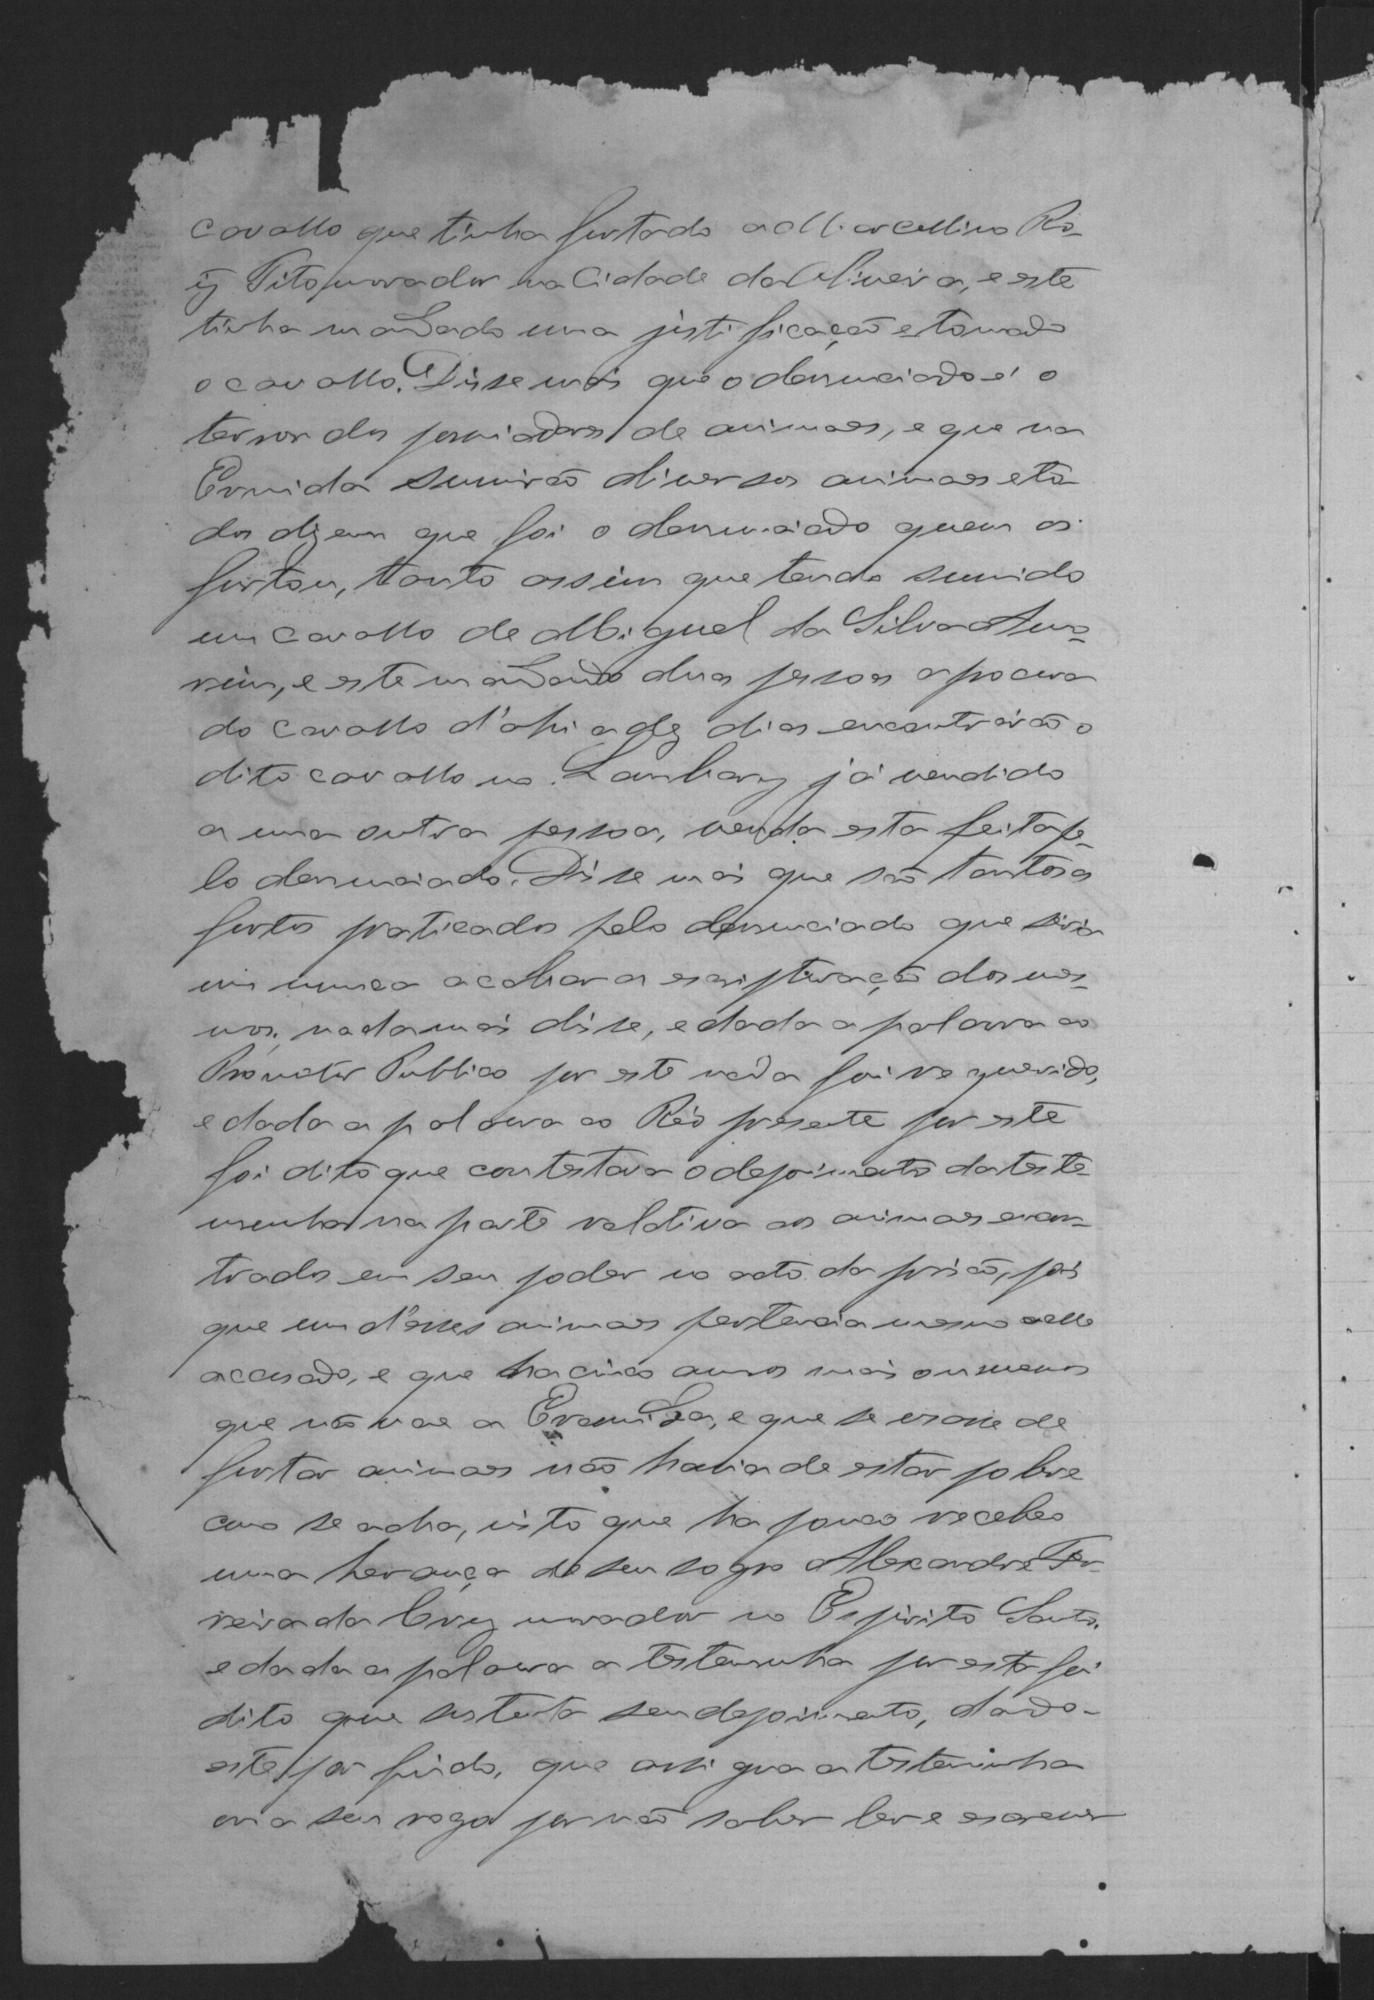 cavallo que tinha furtado a Marcellino Ro-
iz Tito morador na Cidade da Oliveira, e este
tinha mandado uma justificação e tomado
o cavallo. Disse mais que o denunciado é o
terror dos possuidores de animaes, e que na
Ermida sumirão diversos animaes e to-
dos dizem que foi o denunciado quem os
furtou, tanto assim que tendo sumido
um cavallo de Miguel da Silva Amo-
rim, e este mandando duas pessoas a procura
do cavallo d'ahi a dez dias encontrárão o
dito cavallo no Lambary já vendido
a uma outra pessoa, venda esta feita pe-
lo denunciado. Disse mais que são tantos os
furtos praticados pelo denunciado que seria
um nunca acabar a escripturação dos mes-
mos, nada mais disse, e dada a palavra ao
Promotor Publico por este nada foi requerido,
e dada a palavra ao Réo presente por este
foi dito que contestava o depoimento da teste-
munha na parte relativa aos animaes encon-
trados em seu poder no acto da prisão, pois
que um d'esses animaes pertencia mesmo a elle
accusado, e que ha cinco annos mais ou menos
que não vae a Eremida, e que se usasse de
furtar animaes não havia de estar pobre
como se acha, visto que ha pouco recebeo
uma herança de seu sogro Alexandre Fer-
reira da Cruz morador no Espirito Santo.
e dada a palavra a testemunha por esta foi
dito que sustenta seu depoimento, dando-
este por findo, que assigna a testeminha
ou a seu rogo por não saber ler e escrever